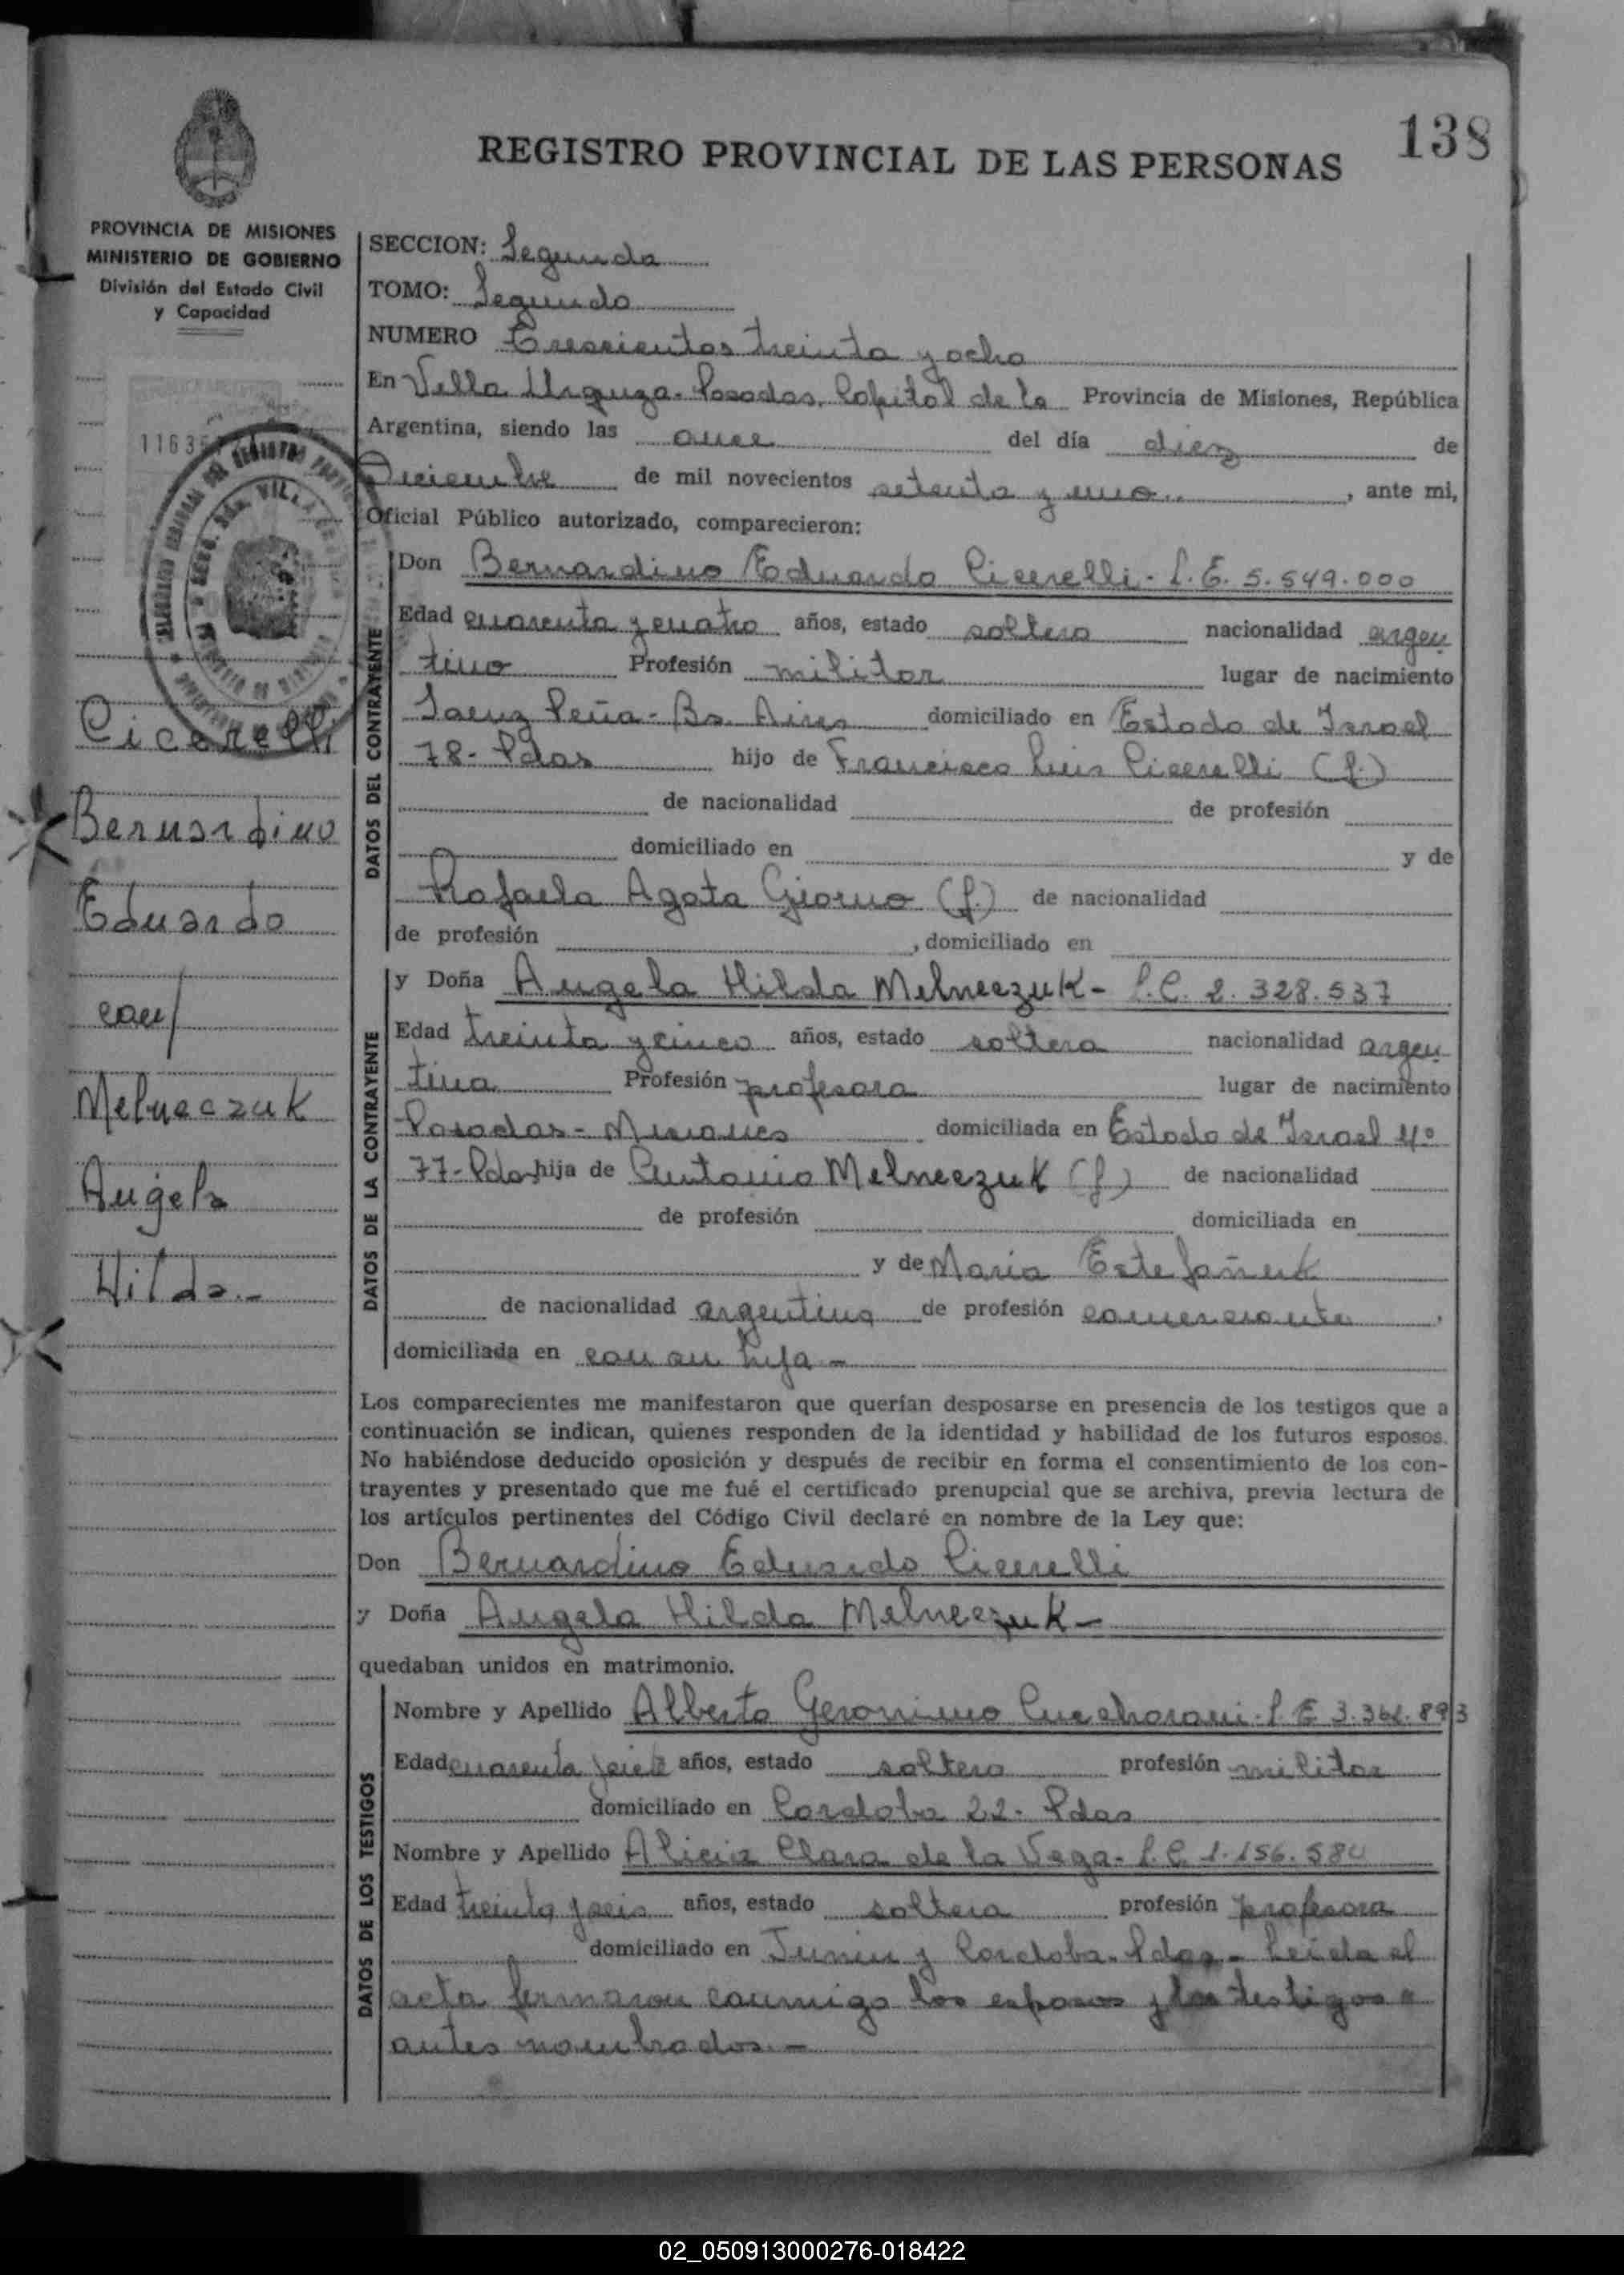 138
REGISTRO PROVINCIAL DE LAS PERSONAS
PROVINCIA DE MISIONES
MINISTERIO DE GOBIERNO
División del Estado Civil
y Capacidad
Cicerelli
Bernardino
Eduardo
con/
Melneczuk
Angela
Hilda.-
SECCION: Segunda
TOMO: Segundo
NUMERO Trescientos treinta y ocho
En Villa Urquiza. Posadas. Capital de la Provincia de Misiones, República
Argentina, siendo las once del día diez de
Diciembre de mil novecientos setenta y uno.., ante mi,
Oficial Público autorizado, comparecieron:
DATOS DEL CONTRAYENTE
Don Bernardino Eduardo Cicerelli- L.E. 5.549.000
Edad cuarenta y cuatro años, estado soltero nacionalidad argen
tino Profesión militar lugar de nacimiento
Saenz Peña- Bs. Aires domiciliado en Estado de Israel
78- Pdas hijo de Francisco Luis Cicerelli (f.)
de nacionalidad de profesión
domiciliado en y de
Rafaela Agata Giorno (f.) de nacionalidad
de profesión , domiciliado en
DATOS DE LA CONTRAYENTE
y Doña Angela Hilda Melneczuk- L.C. 2.328.537
Edad treinta y cinco años, estado soltera nacionalidad argen
tina Profesión profesora lugar de nacimiento
Posadas- Misiones domiciliada en Estado de Israel Nº
77- Pdas hija de Antonio Melneczuk (f) de nacionalidad
de profesión domiciliada en
y de Maria Estefañuk
de nacionalidad argentina de profesión comerciante,
domiciliada en con su hija-
Los comparecientes me manifestaron que querían desposarse en presencia de los testigos que a
continuación se indican, quienes responden de la identidad y habilidad de los futuros esposos.
No habiéndose deducido oposición y después de recibir en forma el consentimiento de los con-
trayentes y presentado que me fué el certificado prenupcial que se archiva, previa lectura de
los artículos pertinentes del Código Civil declaré en nombre de la Ley que:
Don Bernardino Eduardo Cicerelli
y Doña Angela Hilda Melneczuk-
quedaban unidos en matrimonio.
DATOS DE LOS TESTIGOS
Nombre y Apellido Alberto Geronimo L E 3.361.893
Edad cuarenta años, estado soltero profesión militar
domiciliado en Cordoba 22- Pdas
Nombre y Apellido Alicia Clara de la Vega- L.C. 1.156.580
Edad treinta y seis años, estado soltera profesión profesora
domiciliado en Junin y Cordoba- Pdas- Leida el
acta firmaron conmigo los esposos y los testigos
antes nombrados.-
02_050913000276-018422